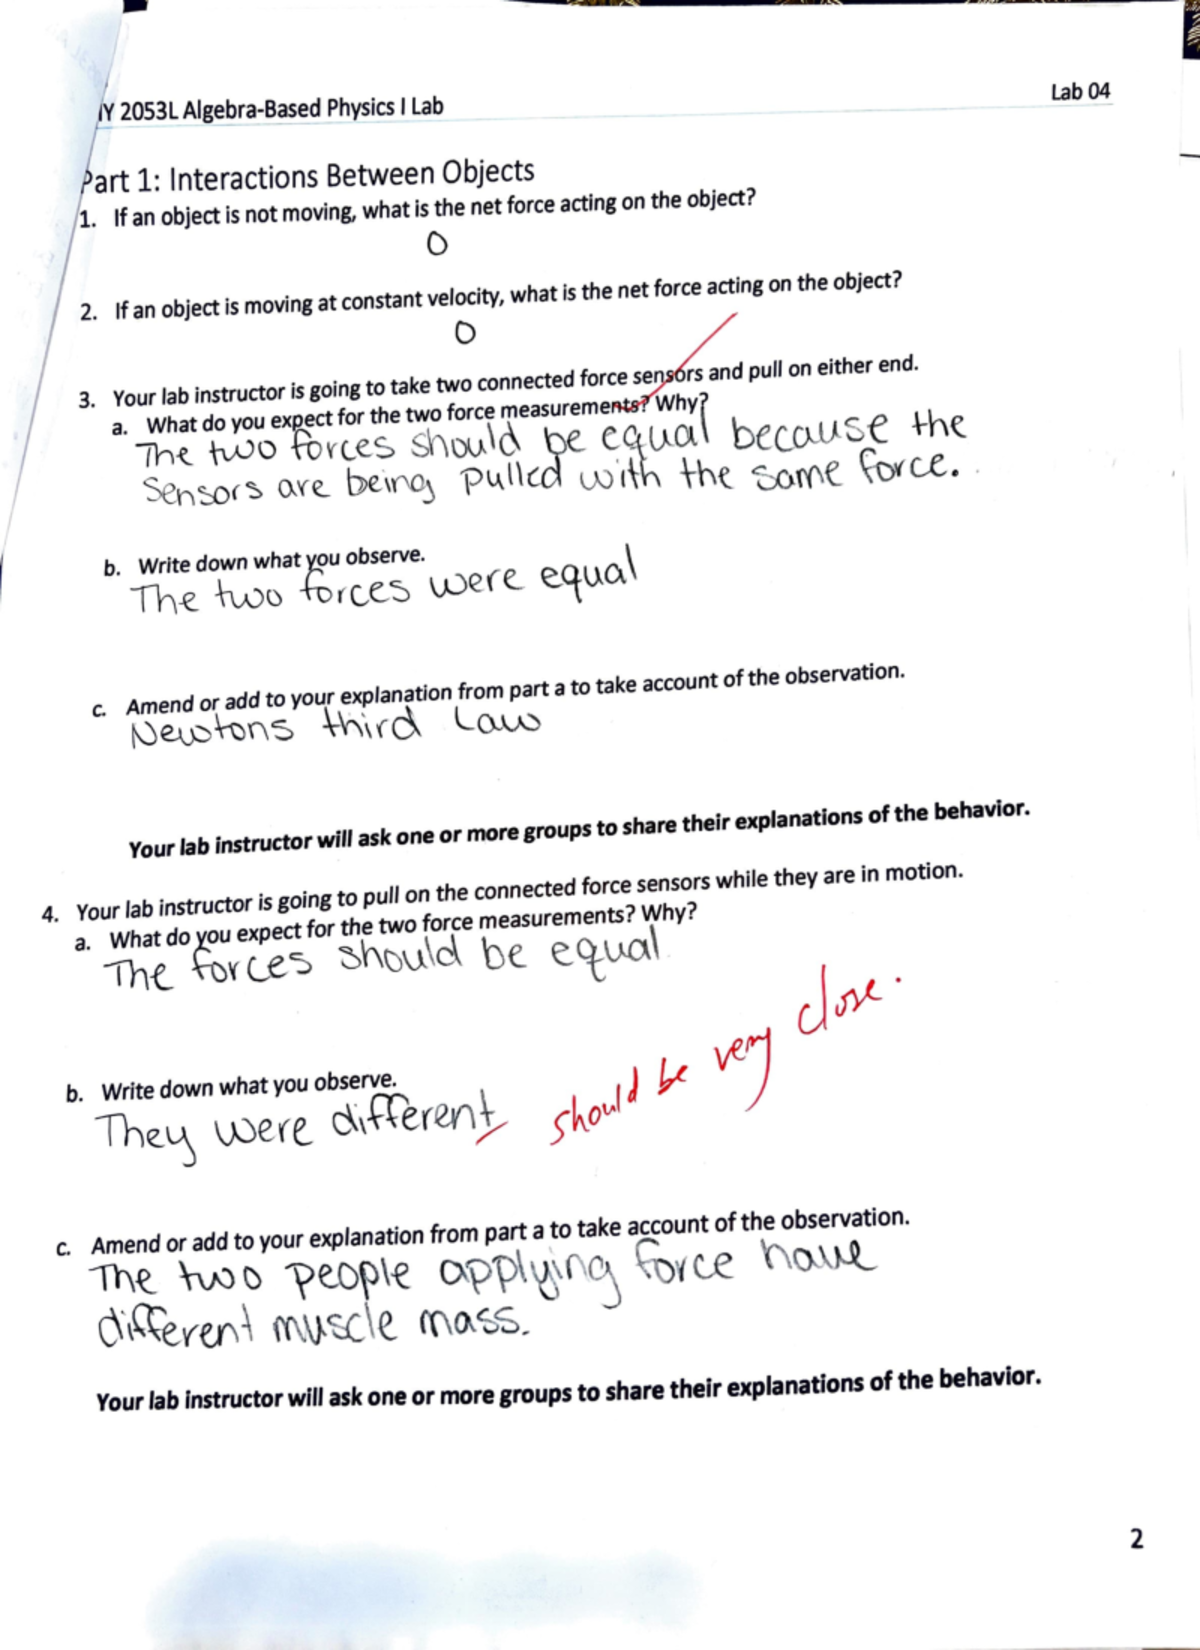 Y 2053L Algebra-Based Physics I Lab
Lab 04
Part 1: Interactions Between Objects
1. If an object is not moving, what is the net force acting on the object?
0
2. If an object is moving at constant velocity, what is the net force acting on the object?
0
3. Your lab instructor is going to take two connected force sensors and pull on either end.
a. What do you expect for the two force measurements? Why?
The two forces should be equal because the
sensors are being pulled with the same force.
b. Write down what you observe.
The two forces were equal
c. Amend or add to your explanation from part a to take account of the observation.
Newtons third Law
Your lab instructor will ask one or more groups to share their explanations of the behavior.
4. Your lab instructor is going to pull on the connected force sensors while they are in motion.
a. What do you expect for the two force measurements? Why?
The forces should be equal.
b. Write down what you observe.
They were different should be very close.
c. Amend or add to your explanation from part a to take account of the observation.
The two people applying force have
different muscle mass.
Your lab instructor will ask one or more groups to share their explanations of the behavior.
2